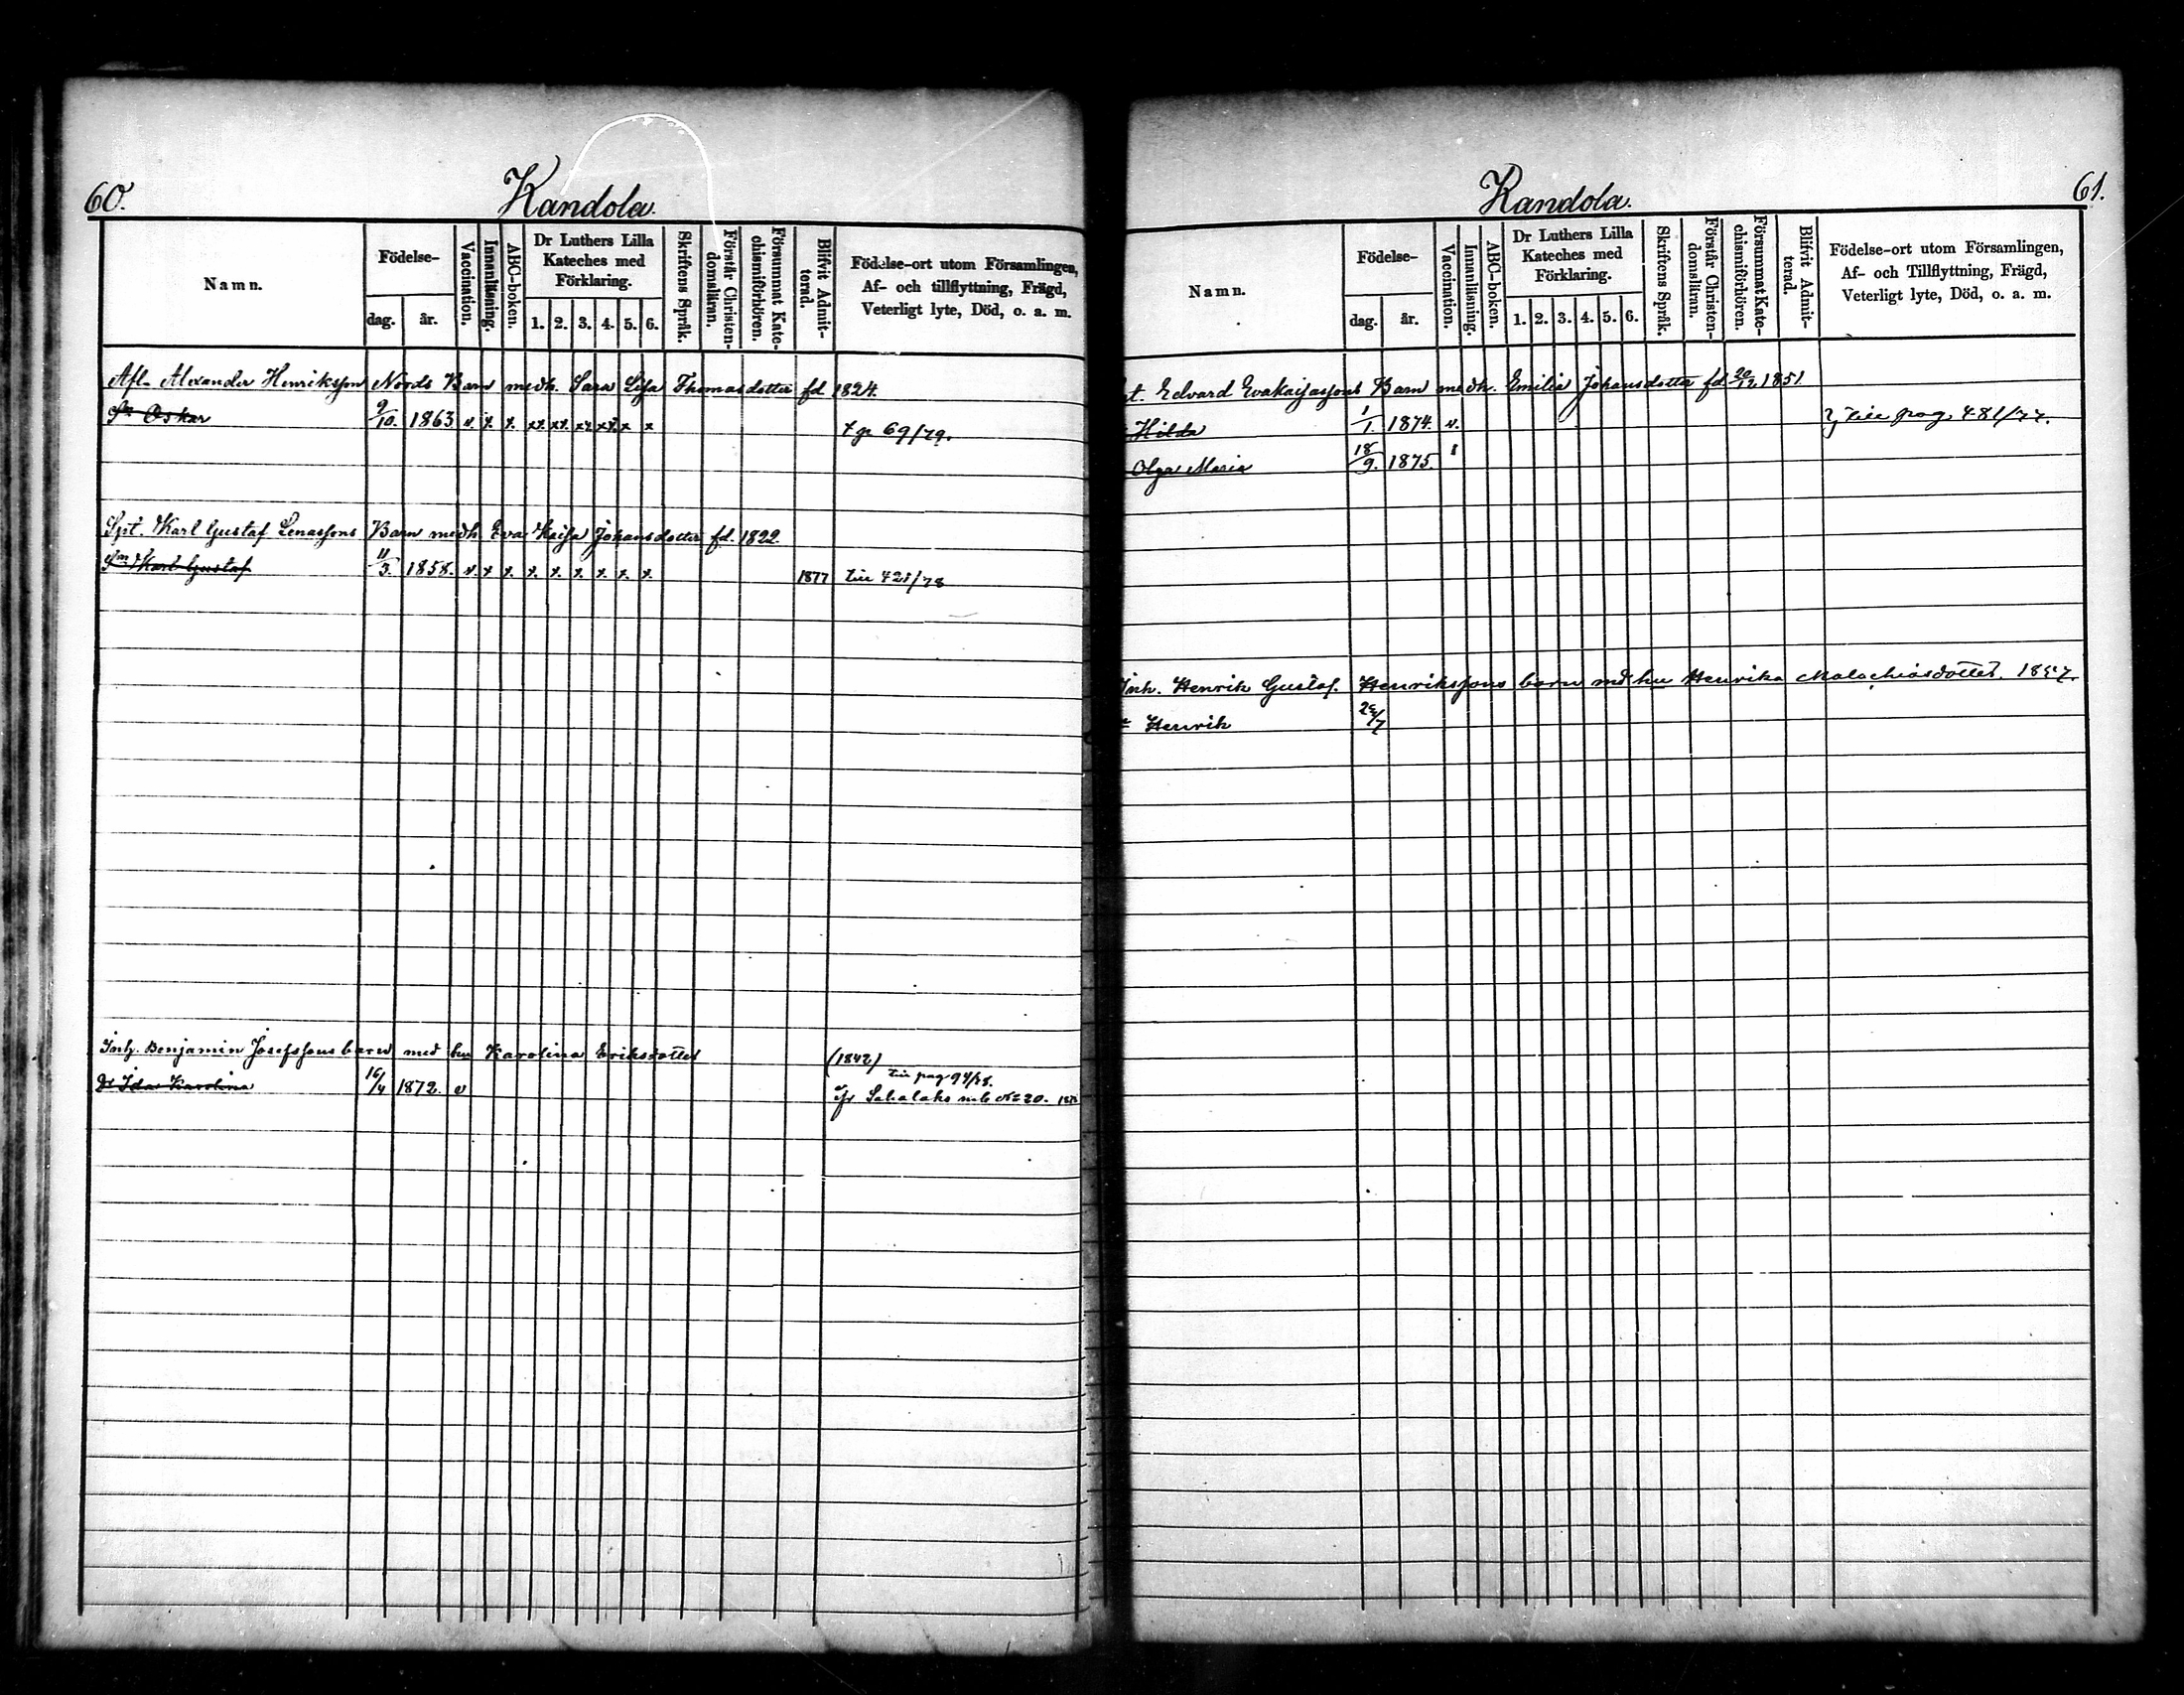 60.
Kandola.
Namn.
Födelse-
dag.
år.
Vaccination.
Innanläsning.
ABC-boken.
Dr Luthers Lilla
Kateches med
Förklaring.
1. 2. 3. 4. 5. 6.
Skriftens Språk.
Förstår Christen-
domsläran.
Försummat Kate-
chismiförhören.
Blifvit Admit-
terad.
Födelse-ort utom Församlingen,
Af- och tillflyttning, Frägd,
Veterligt lyte, Död, o. a. m.
Afl. Alexander Henriksson Nords Barn medh. Sara Lisa Thomasdotter fd 1824.
Sn Oskar 9/10. 1863 v. x x. xx. xx. xx. xx. x x 69/79.
Spt. Karl Gustaf Lenassons Barn medh. Eva Kaisa Johansdotter fd. 1822.
Sn Karl Gustaf 11/5. 1858. v. x x. x. x. x. x. x. x. 1877 till 421/78
Inh. Benjamin Josefssons barn med hu Karolina Eriksdotter (1842)
till pag 94/78.
Dr Ida Karolina 16/4 1872. v fr No 20.
61.
Kandola.
Namn.
Födelse-
dag.
år.
Vaccination.
Innanläsning.
ABC-boken.
Dr Luthers Lilla
Kateches med
Förklaring.
1. 2. 3. 4. 5. 6.
Skriftens Språk.
Förstår Christen-
domsläran.
Försummat Kate-
chismiförhören.
Blifvit Admit-
terad.
Födelse-ort utom Församlingen,
Af- och Tillflyttning, Frägd,
Veterligt lyte, Död, o. a. m.
t. Edvard Evakaisassons Barn medh. Emilia Johansdotter fd. 20/12 1851.
Hilda 1/1. 1874. v. till pag. 481/77.
Olga Maria 18/9. 1875.
Inh. Henrik Gustaf Henrikssons barn med hu Henrika Malachiasdotter. 1857.
Henrik